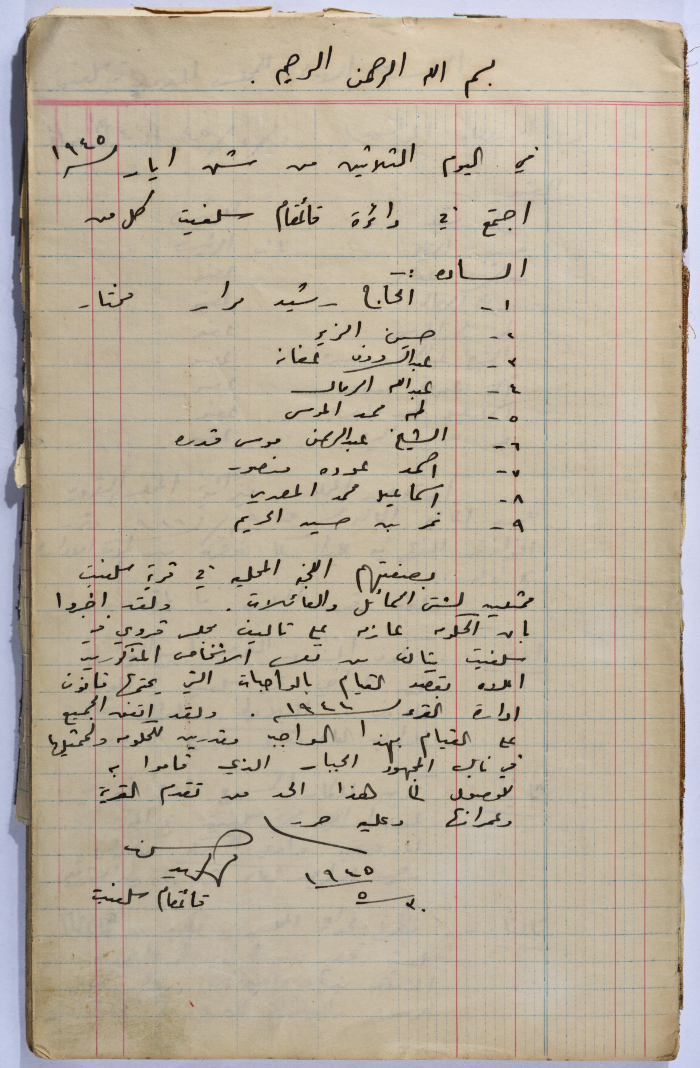 بسم الله الرحمن الرحيم .
في اليوم الثلاثين من شهر ايار سنة ١٩٤٥
اجتمع في دائرة قائمقام سلفيت كل من
الساده :ـ
١ـ الحاج رشيد مرار مختار
٢ـ حسين الزير
٣ـ عبدالرؤوف عفانه
٤ـ عبدالله الرمال
٥ـ طه محمد الموسى
٦ـ الشيخ عبدالرحمن موسى قدره
٧ـ احمد عوده منصور
٨ـ اسماعيل محمد المصري
٩ـ نمر بن حسين الحريم
بصفتهم اللجنة المحليه في قرية سلفيت
ممثلين لشتى الحمائل والعائلات . ولقد اخبروا
بان الحكومه عازمه على تاليف مجلس قروي في
سلفيت يتالف من نفس الاشخاص المذكورين
اعلاه بقصد القيام بالواجبات التي يحتمها قانون
ادارة القرى لسنة ١٩٤٤ . ولقد اتفق الجميع
على القيام بهذا الواجب مقدرين للحكومه ولممثليها
في نابلس المجهود الجبار الذي قاموا به
للوصول الى هذا الحد من تقدم القرية
وعمرانها وعليه حرر
١٩٤٥
٥
٣٠
قائمقام سلفيت